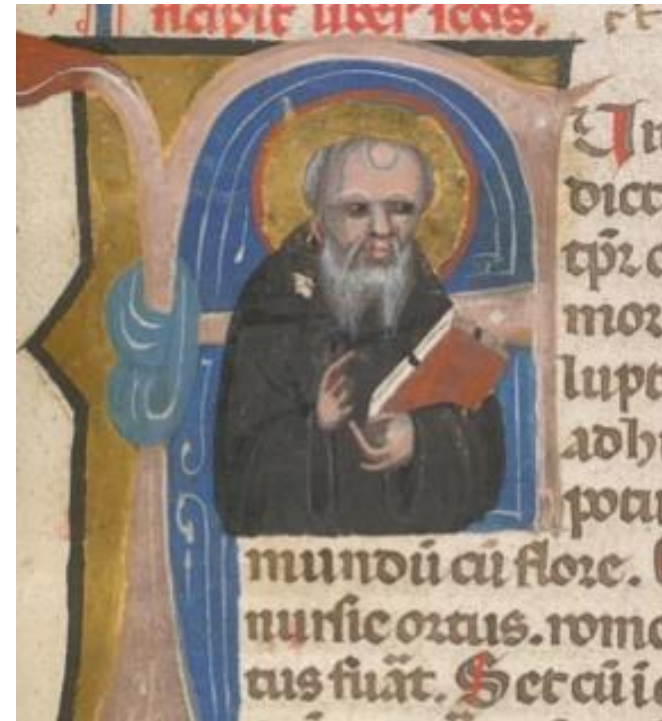 ncipit liber scds.
Uir
dicc
tpr̄ c
mor
lupt
adhu
potu
mundū cū flore.
nursie ortus. rome
tus fuāt. Set cū i